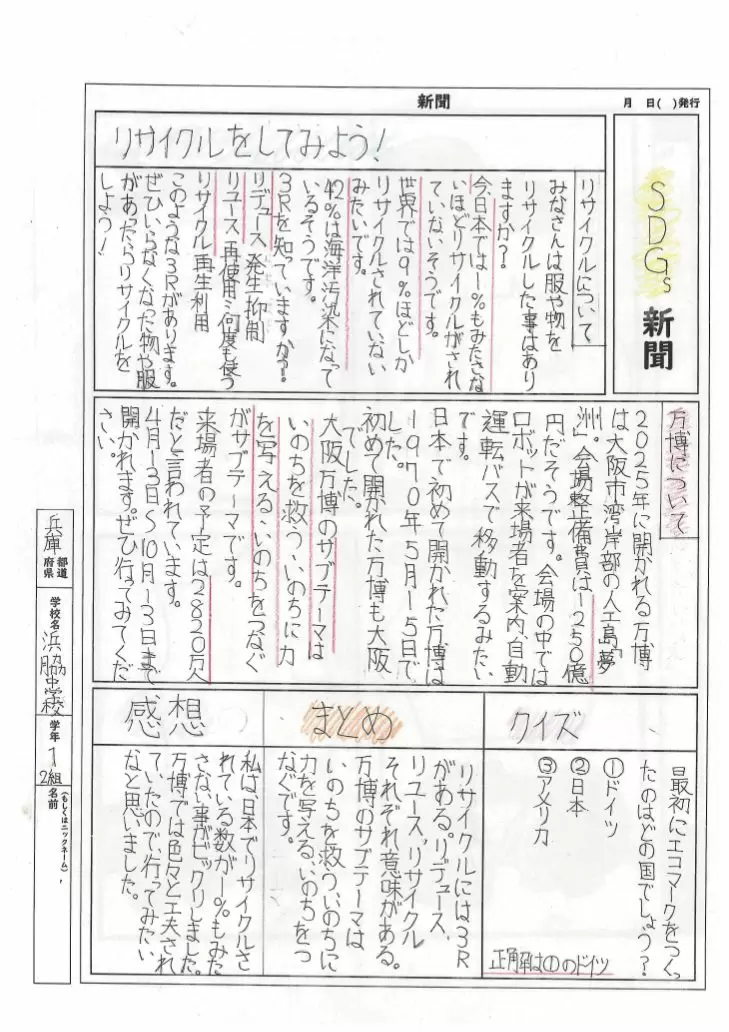 新聞
月 日( )発行
SDGs
新聞
リサイクルをしてみよう!
リサイクルについて
みなさんは服や物を
リサイクルした事はあり
ますか?
今、日本では一%もみたさな
いほどリサイクルがされ
ていないそうです。
世界では9%ほどしか
リサイクルされていない
みたいです。
42%は海洋汚染になって
いるそうです。
3Rを知っていますか?
リデュース 発生抑制
リユース 再使用…何度も使う
リサイクル 再生利用
このような3Rがあります。
ぜひいらなくなった物や服
があったらリサイクルを
しよう!
万博について
2025年に開かれる万博
は大阪市湾岸部の人工島「夢
洲」。会場整備費は一250億
円だそうです。会場の中では
ロボットが来場者を案内、自動
運転バスで移動するみたい
です。
日本で初めて開かれた万博は
1970年5月一5日で
した。
初めて開かれた万博も大阪
でした。
大阪万博のサブテーマは
いのちを救う、いのちに力
を写える、いのちをつなぐ
がサブテーマです。
来場者の予定は2820万人
だと言われています。
4月一3日〜10月一3日まで
開かれます。ぜひ行ってみてくだ
さい。
クイズ
最初にエコマークをつくっ
たのはどの国でしょう?
①ドイツ
②日本
③アメリカ
正解は①のドイツ
まとめ
リサイクルには3R
がある。リデュース、
リユース、リサイクル
それぞれ意味がある。
万博のサブテーマは
いのちを救う、いのちに
力を写える、いのちをつ
なぐです。
感想
私は、日本でリサイクルさ
れている数が一%もみた
さない事がビックリしました。
万博では色々と工夫され
ていたので、行ってみたい
なと思いました。
兵庫 都道府県
学校名 浜脇中学校
学年 1
2組
名前(もしくはニックネーム)